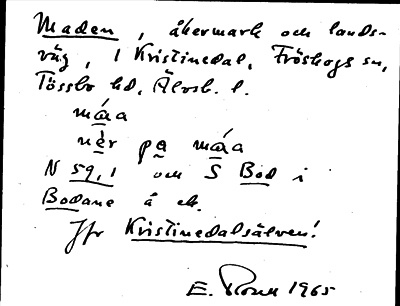 Maden, åkermark och lands-
väg, i Kristinedal, Fröskogs sn,
Tössbo hd, Älvsb. l.
måa
nèr pa måa
N 59,1 och S Bod i
Bodane å ek.
Jfr Kristinedalsälven!
E. 1965